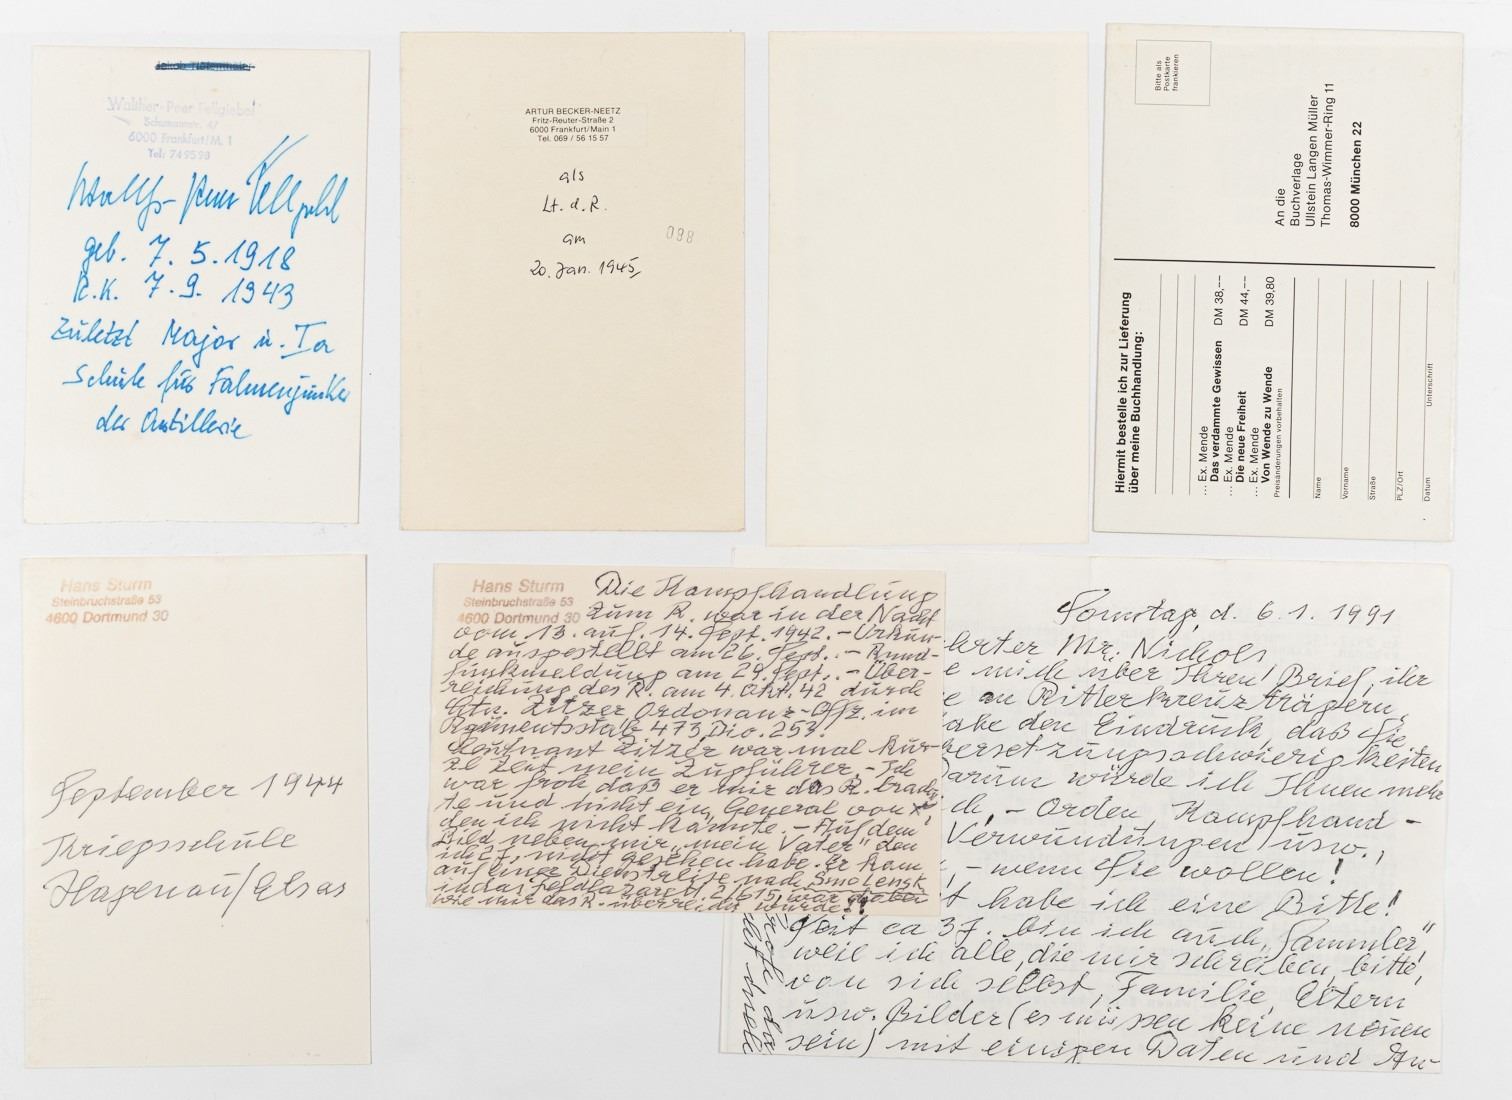 Walther-Peer Fellgiebel
6000 Frankfurt/M. 1
Tel: 749598
geb. 7. 5. 1918
R.K. 7. 9. 1943
Zuletzt Major u. Ia
Schule für Fahnenjunker
der Artillerie
ARTUR BECKER-NEETZ
Fritz-Reuter-Straße 2
6000 Frankfurt/Main 1
Tel. 069 / 56 15 57
als
Lt. d. R.
am
20. Jan. 1945
098
Bitte als
Postkarte
frankieren
An die
Buchverlage
Ullstein Langen Müller
Thomas-Wimmer-Ring 11
8000 München 22
Hiermit bestelle ich zur Lieferung
über meine Buchhandlung:
... Ex. Mende
Das verdammte Gewissen DM 38,--
... Ex. Mende
Die neue Freiheit DM 44,--
... Ex. Mende
Von Wende zu Wende DM 39,80
Preisänderungen vorbehalten
Name
Vorname
Straße
PLZ/Ort
Datum Unterschrift
Hans Sturm
Steinbruchstraße 53
4600 Dortmund 30
September 1944
Kriegsschule
Hagenau/Elsas
Hans Sturm
Steinbruchstraße 53
4600 Dortmund 30
Die Kampfhandlung
zum R. war in der Nacht
vom 13. auf. 14. Sept. 1942. - Urkun-
de ausgestellt am 26. Sept. - Rund-
funkmeldung am 29. Sept. - Über-
reichung des R. am 4. Okt. 42 durch
Ltn. Zitzer Ordonanz-Offz. im
Regimentsstab 473, Div. 253!
Leutnant Zitzer war mal kur-
ze Zeit mein Zugführer. - Ich
war froh, daß er mir das R. brach-
te und nicht ein General von
den ich nicht kannte. - Auf dem
Bild neben mir "mein Vater" den
ich nicht gesehen habe. Er kam
auf einer Dienstreise nach Smolensk
in das Feldlazarett 2/615, war dabei
wie mir das R. überreicht wurde!!
Sonntag, d. 6. 1. 1991
Mr. Nichols
mich über Ihren Brief, der
an Ritterkreuzträgern,
den Eindruck, daß Sie
würde ich Ihnen mehr
- Orden Kampfhand-
Verwundungen usw.,
- wenn Sie wollen!
habe ich eine Bitte!
Seit ca 3 J. bin ich auch "Sammler",
weil ich alle, die mir schreiben, bitte,
von sich selbst, Familie, Eltern
usw. Bilder (es müssen keine neuen
sein) mit einigen Daten und An-